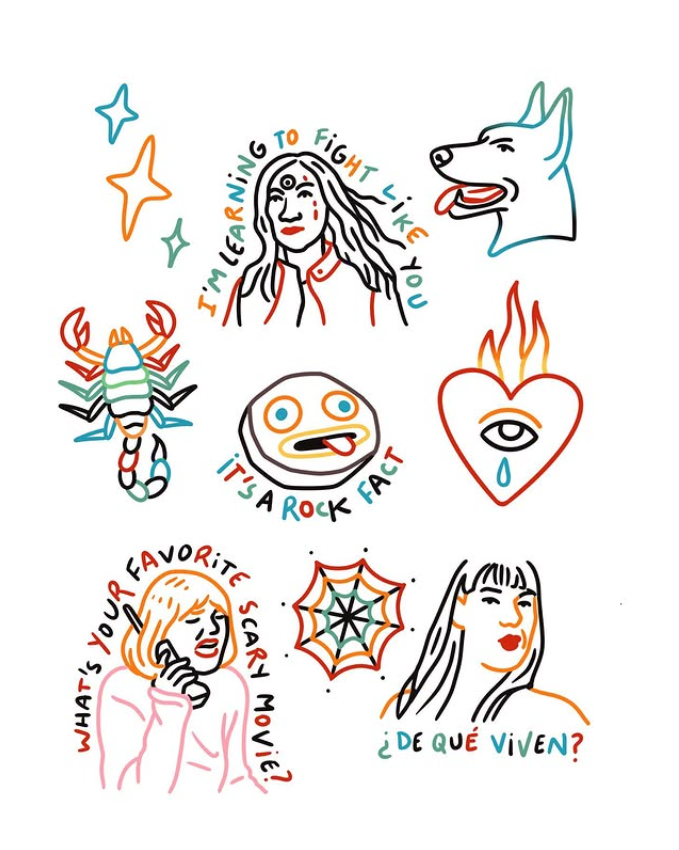 I'M LEARNING TO FIGHT LIKE YOU
IT'S A ROCK FACT
WHAT'S YOUR FAVORITE SCARY MOVIE?
¿DE QUÉ VIVEN?